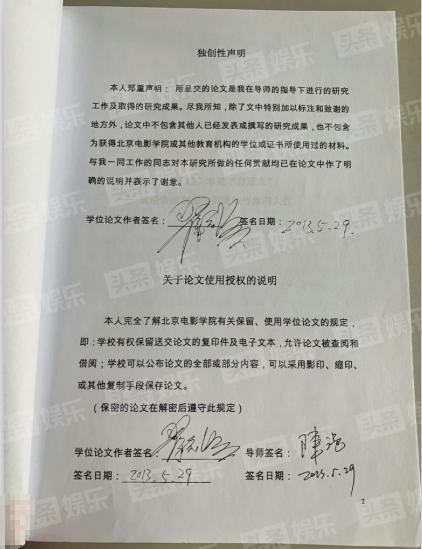 独创性声明
本人郑重声明： 所呈交的论文是我在导师的指导下进行的研究
工作及取得的研究成果。尽我所知，除了文中特别加以标注和致谢的
地方外，论文中不包含其他人已经发表或撰写的研究成果，也不包含
为获得北京电影学院或其他教育机构的学位或证书所使用过的材料。
与我一同工作的同志对本研究所做的任何贡献均已在论文中作了明
确的说明并表示了谢意。
学位论文作者签名： 签名日期：2013.5.29.
关于论文使用授权的说明
本人完全了解北京电影学院有关保留、使用学位论文的规定，
即：学校有权保留送交论文的复印件及电子文本，允许论文被查阅和
借阅；学校可以公布论文的全部或部分内容，可以采用影印、缩印、
或其他复制手段保存论文。
（保密的论文在解密后遵守此规定）
学位论文作者签名： 导师签名：
签名日期：2013.5.29 签名日期：2013.5.29
2
头条娱乐